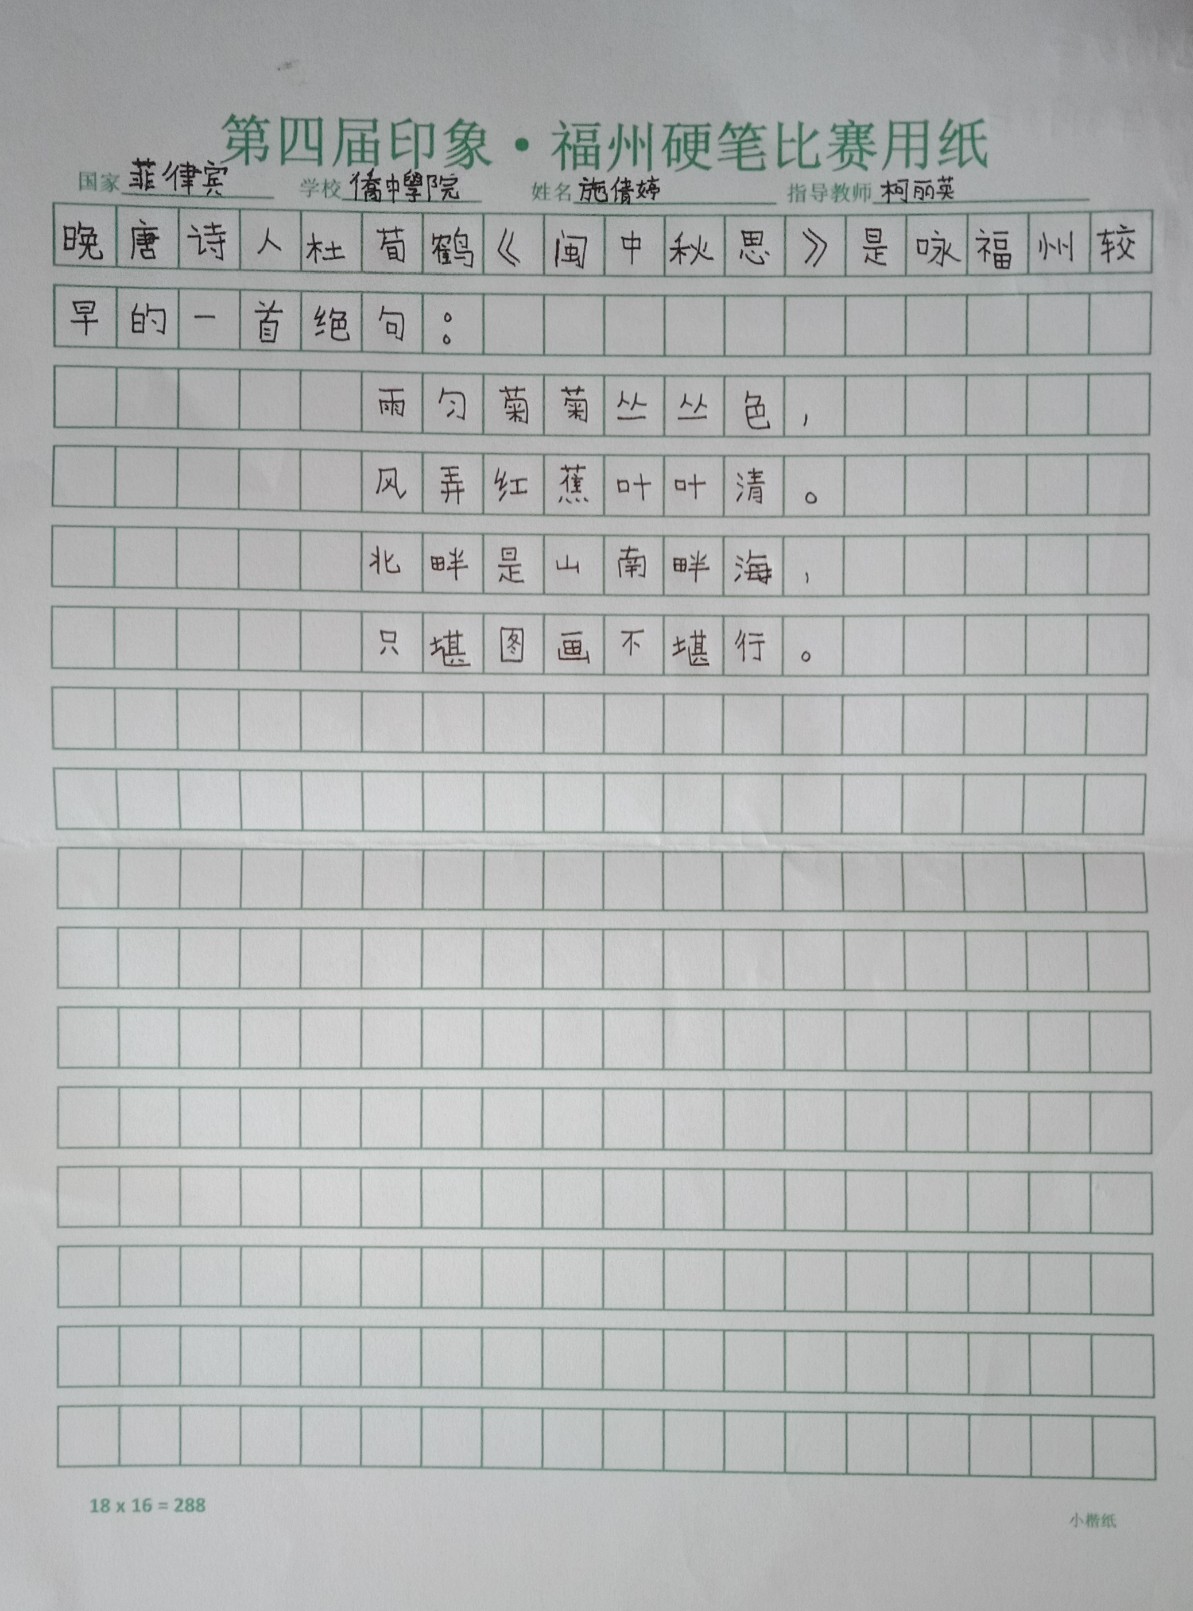 第四届印象·福州硬笔比赛用纸
国家 菲律宾 学校 僑中學院 姓名 施倩婷 指导教师 柯丽英
晚唐诗人杜荀鹤《闽中秋思》是咏福州较
早的一首绝句：
雨匀菊菊丛丛色，
风弄红蕉叶叶清。
北畔是山南畔海，
只堪图画不堪行。
18 x 16 = 288
小楷纸